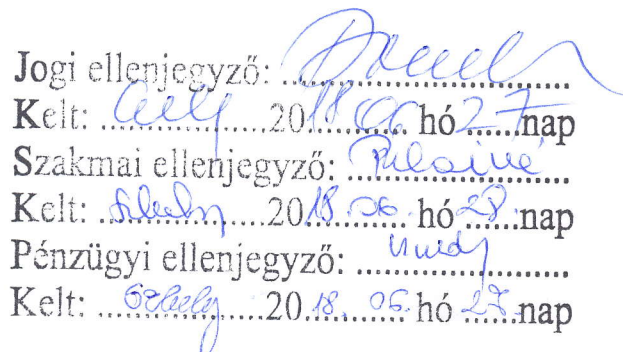 Jogi ellenjegyző: ....................
Kelt: ............ 2018.06. hó 27 nap
Szakmai ellenjegyző: ....................
Kelt: ............ 2018.06. hó 28. nap
Pénzügyi ellenjegyző: ....................
Kelt: ............ 2018. 06. hó 27. nap